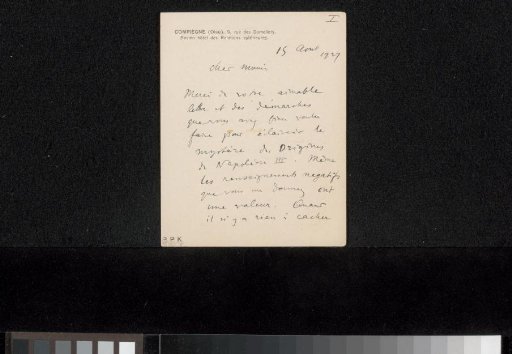 I
COMPIÈGNE (Oise), 9, rue des Domeliers
Ancien hôtel des Relations extérieures
15 Aout 1927
Cher
Merci de votre aimable
lettre et des démarches
que vous avez bien voulu
faire pour éclaircir le
mystère des Origines
de Napoléon III. Même
les renseignements négatifs
que vous me donnez ont
une valeur. Quand
il n'y a rien à cacher